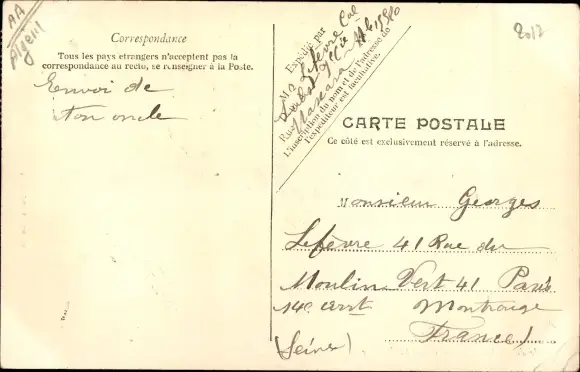 AA
Algerie
Correspondance
Tous les pays etrangers n'acceptent pas la
correspondance au recto, se renseigner à la Poste.
Envoi de
ton oncle
Expédié par
M Lefèvre Cal
Rue Mascara
L'inscription du nom et de l'adresse de
l'expéditeur est facultative.
2017
CARTE POSTALE
Ce côté est exclusivement réservé à l'adresse.
Monsieur Georges
Lefèvre 41 Rue du
Moulin Vert 41 Paris
14e arrt Montrouge
(Seine) France)